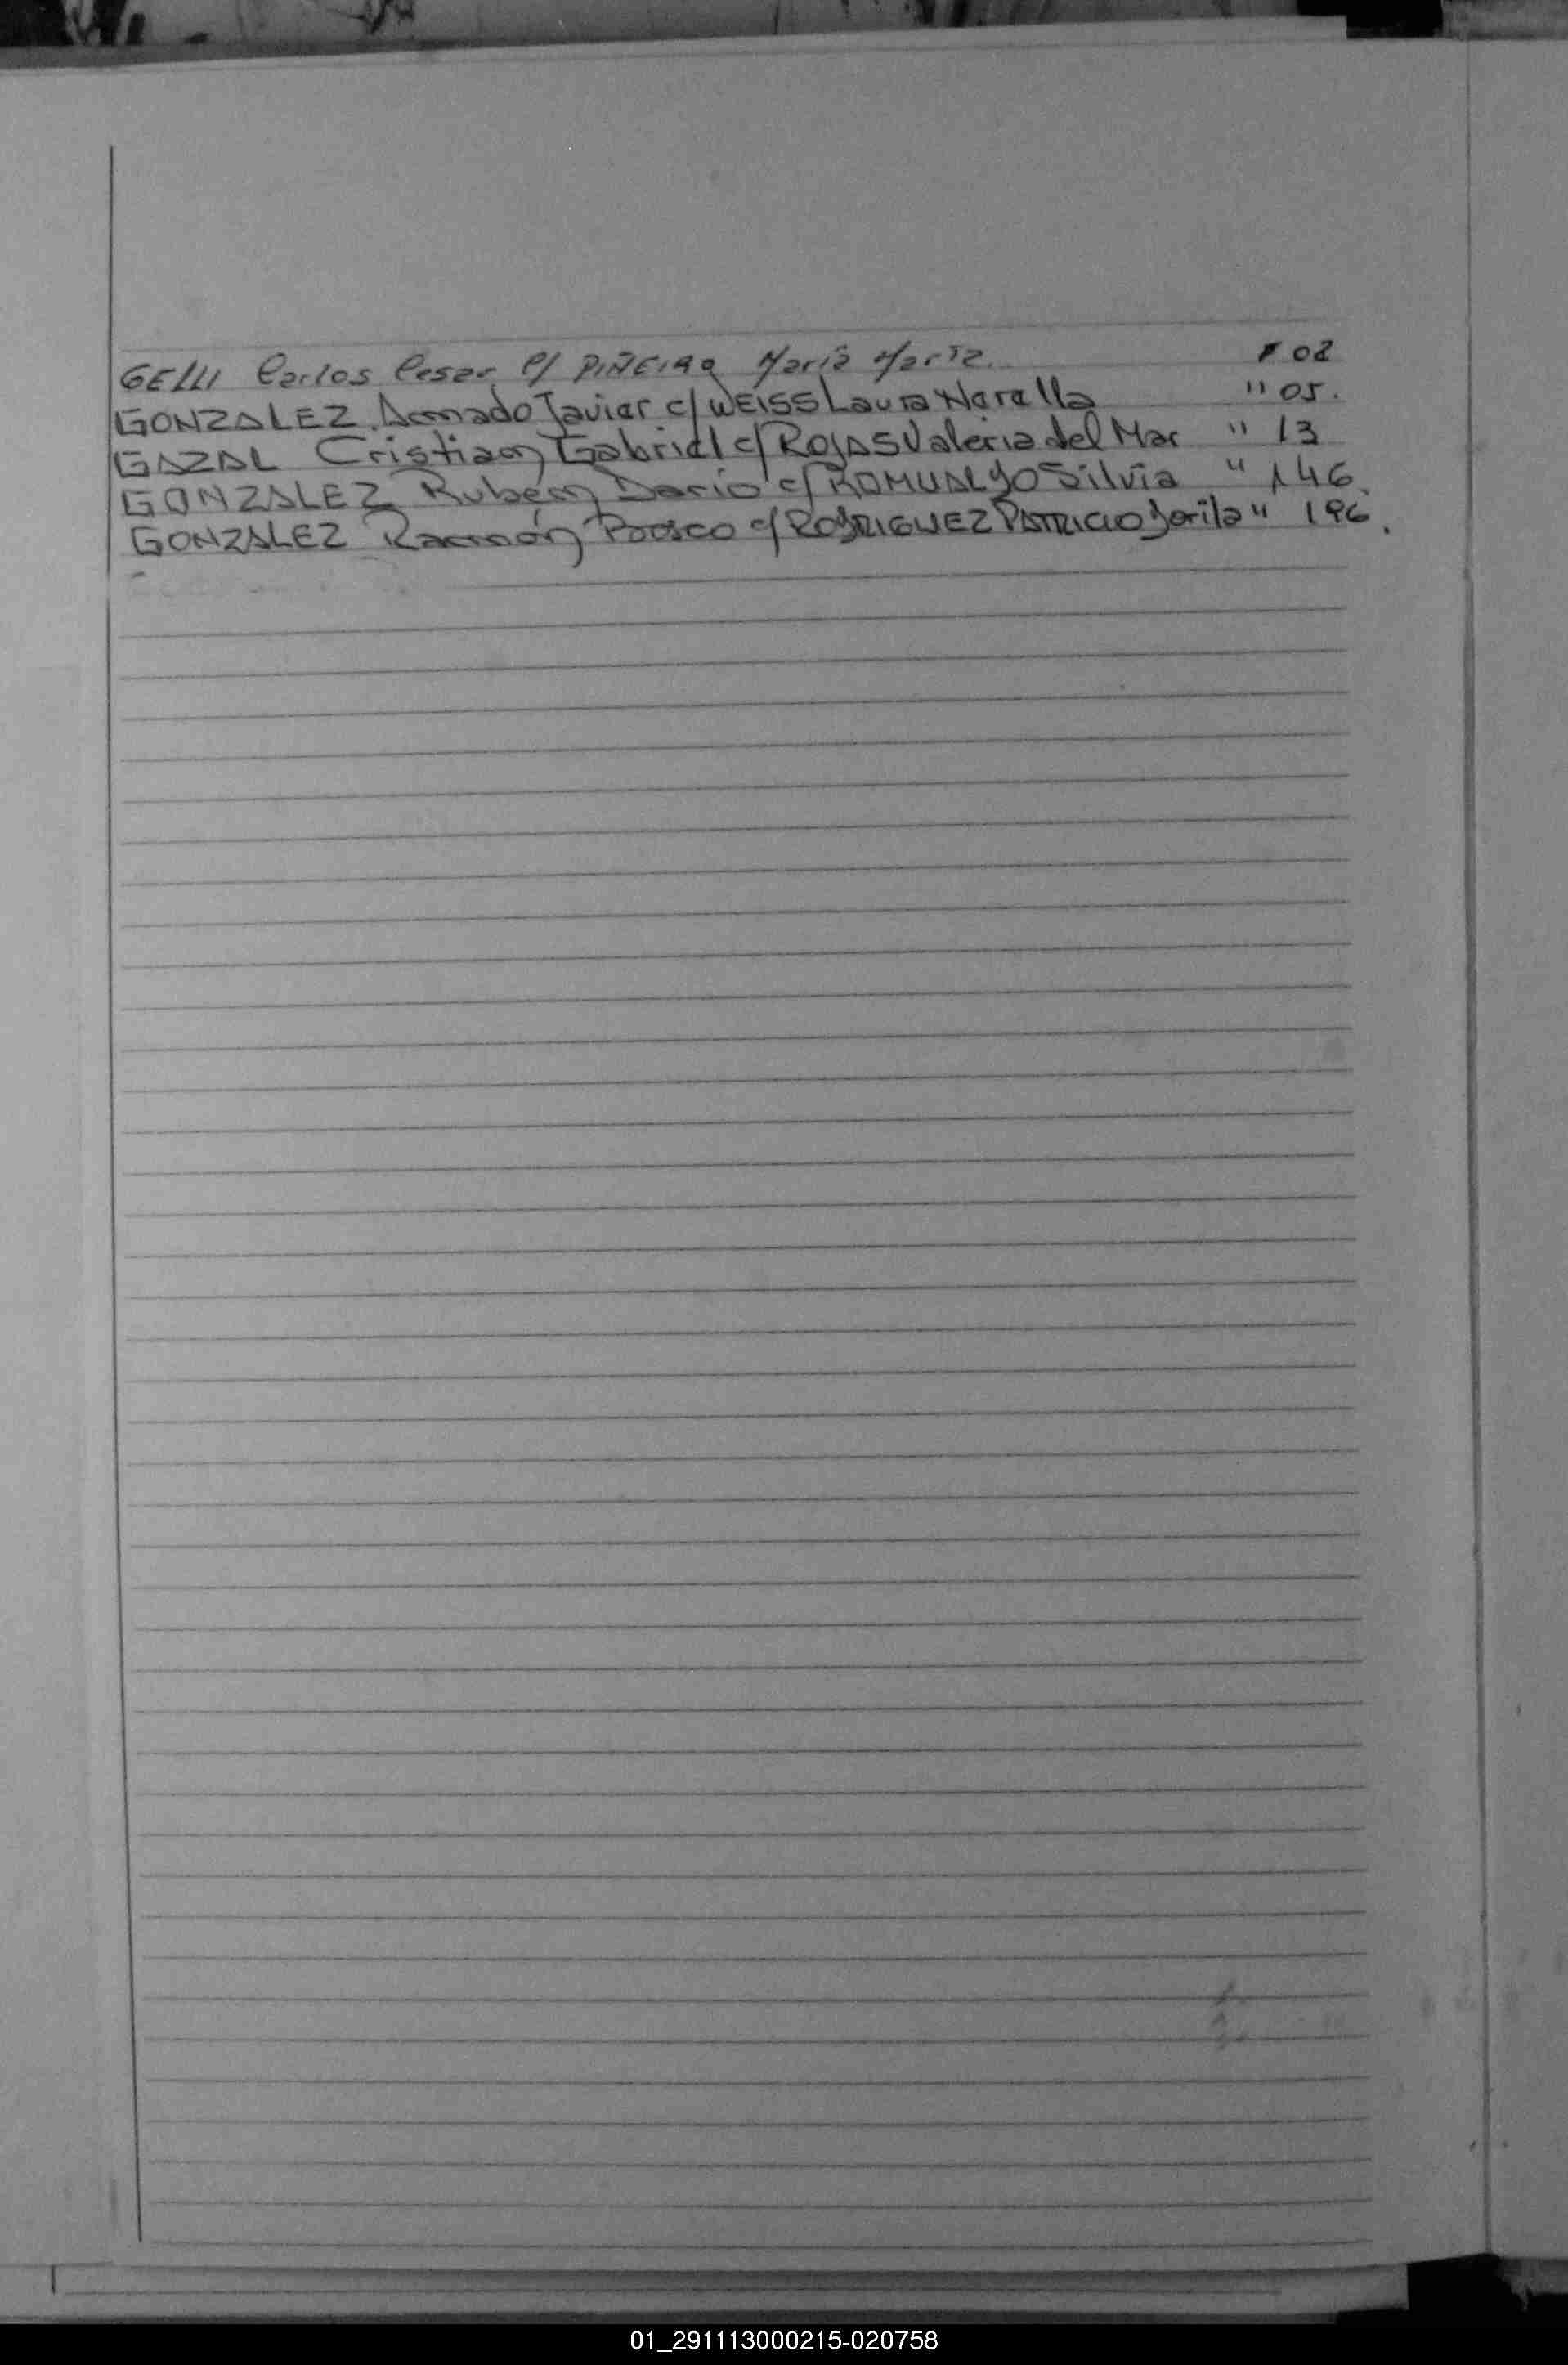 GELLI Carlos Cesar c/ PIÑEIRO María Marta. F 02
GONZALEZ Amado Javier c/ WEISS Laura Narella " 05.
GAZAL Cristian Gabriel c/ ROJAS Valeria del Mar " 13
GONZALEZ Rubén Dario c/ ROMUALDO Silvia " 146
GONZALEZ Ramón Bosco c/ RODRIGUEZ PATRICIO " 196.
01_291113000215-020758